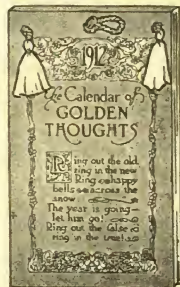 1912
The Calendar of
GOLDEN
THOUGHTS
Ring out the old
ring in the new
Ring happy
bells across the
snow
The year is going
let him go!
Ring out the false
ring in the true